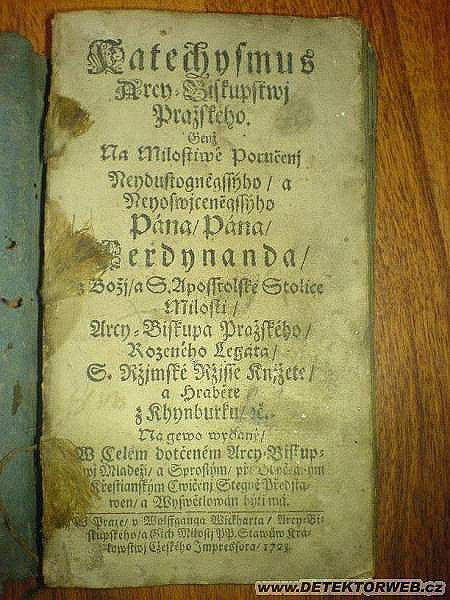 Katechysmus
Arcy-Biskupstwj
Pražského.
Genž
Na Milostiwé Poručenj
Neydustogněgssýho / a
Neyoswjceněgssýho
Pána / Pána /
Ferdynanda /
z Božj / a S. Aposstolské Stolice
Milosti /
Arcy-Biskupa Pražského /
Rozeného Legáta /
S. Ržjmské Ržjsse Knjžete /
a Hraběte
z Khynburku / ꝛč.
Na gewo wydaný /
W Celém dotčeném Arcy-Biskup-
stwj Mládeži / a Sprostým / při
Křestianským Cwičenj Stegně Předsta-
wen / a Wyswětlowán býti má.
W Praze / v Wolffganga Wickharta / Arcy-Bi-
skupského / a Gich Milostj PP. Stawůw Krá-
lowstwj Cžeského Impressora / 1723.
www.DETEKTORWEB.cz